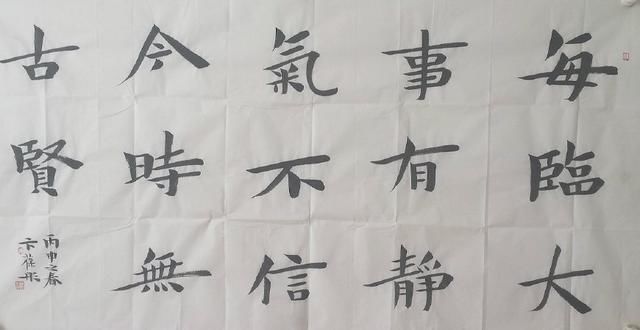 每臨大
事有靜
氣不信
今時無
古賢
丙申之春